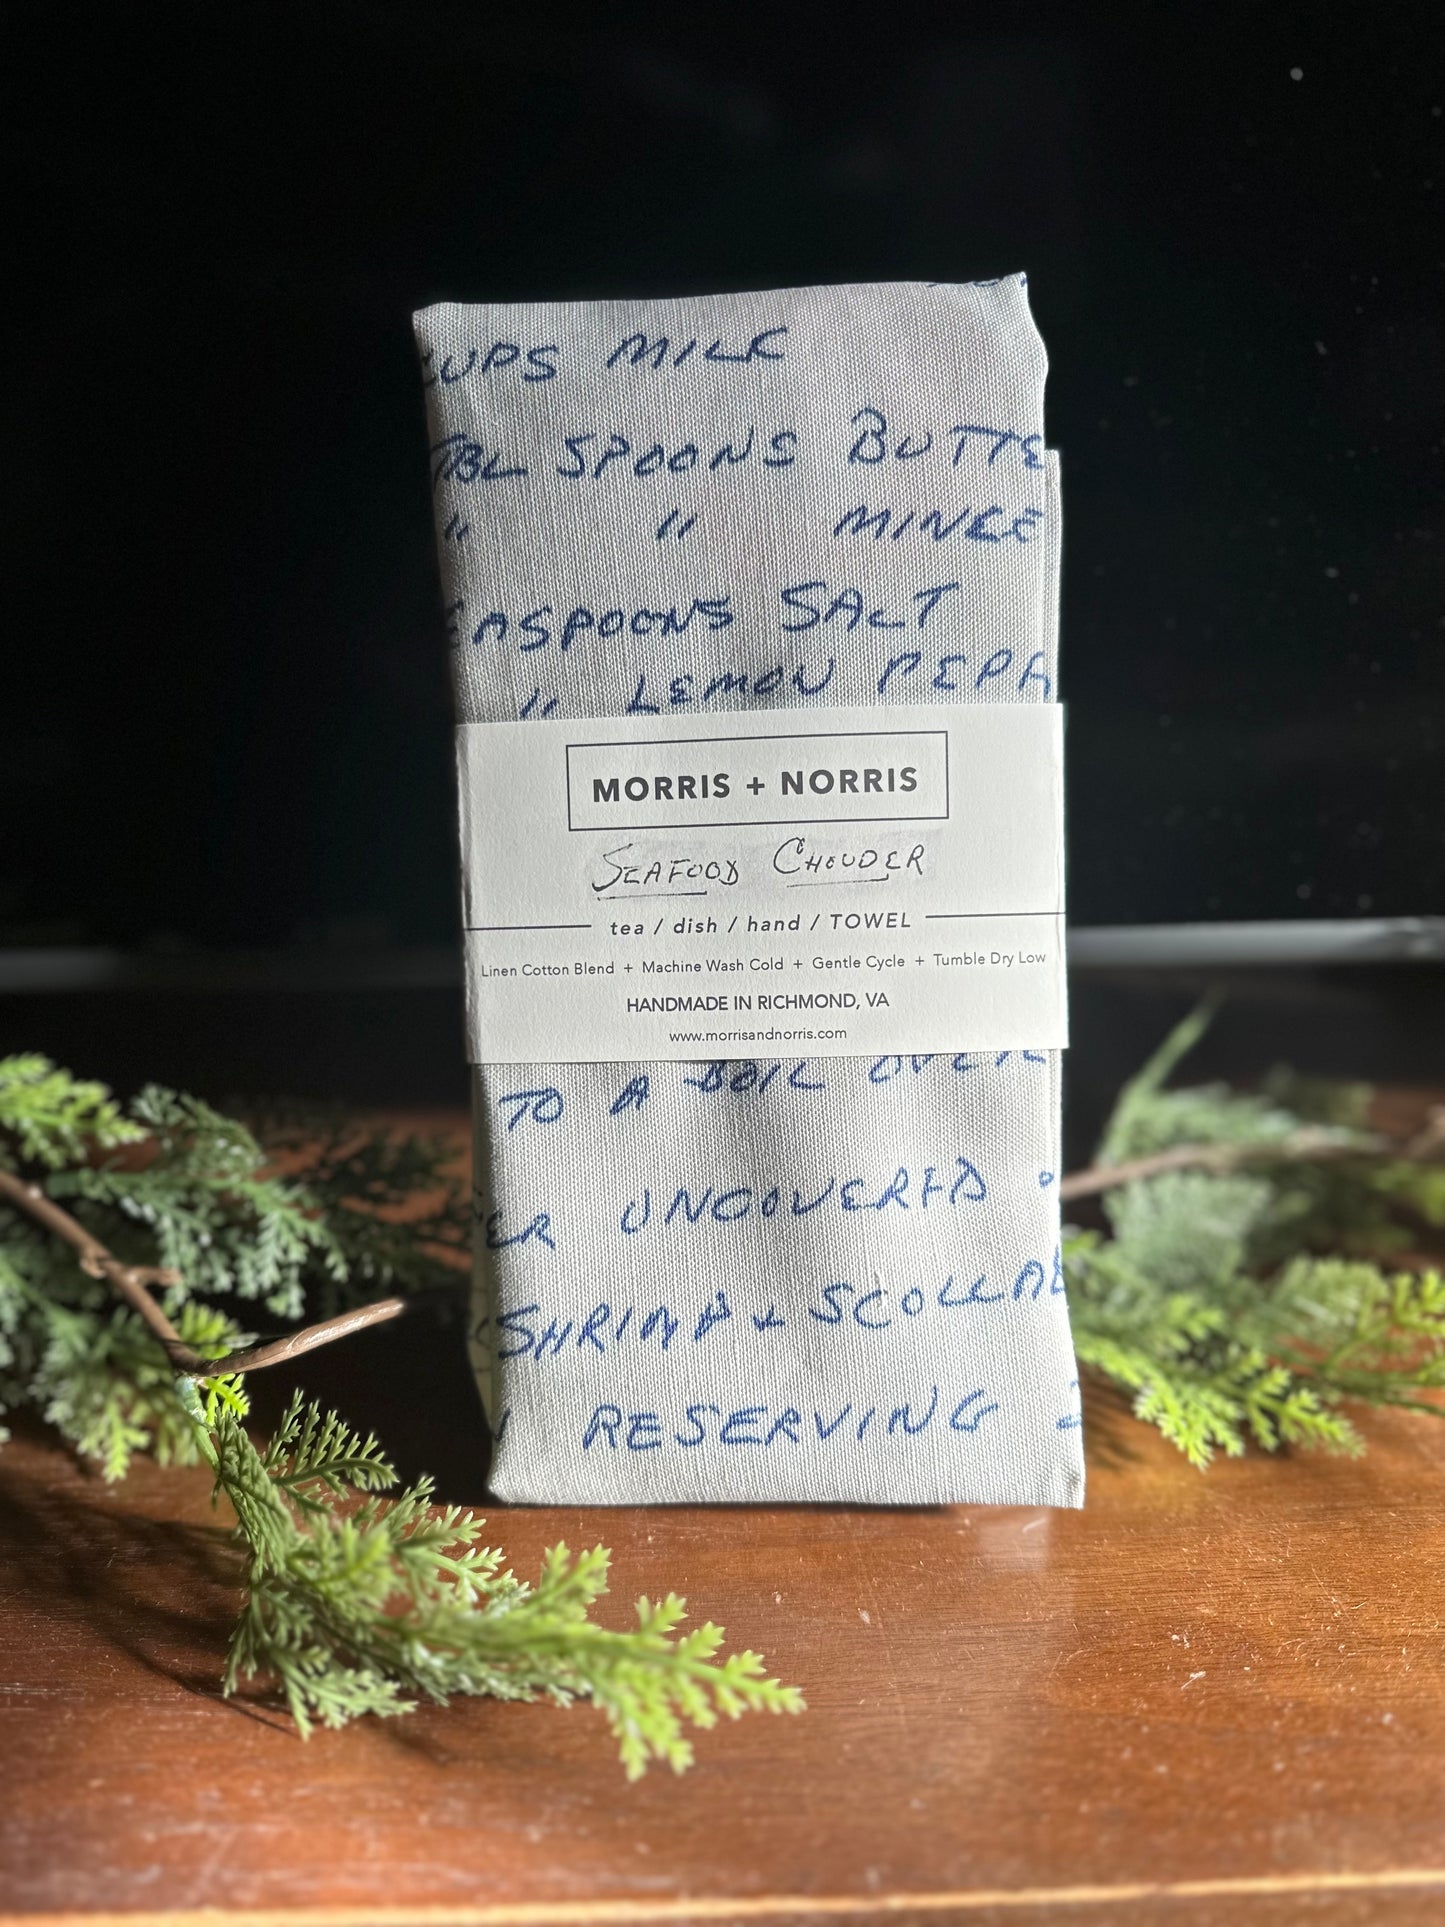 CUPS MILK
TBL SPOONS BUTTE
" " MINCE
EASPOONS SALT
" LEMON PEPP
MORRIS + NORRIS
SEAFOOD CHOUDER
tea / dish / hand / TOWEL
Linen Cotton Blend + Machine Wash Cold + Gentle Cycle + Tumble Dry Low
HANDMADE IN RICHMOND, VA
www.morrisandnorris.com
TO A BOIL OVER
ER UNCOVERED
SHRIMP + SCOLLA
RESERVING